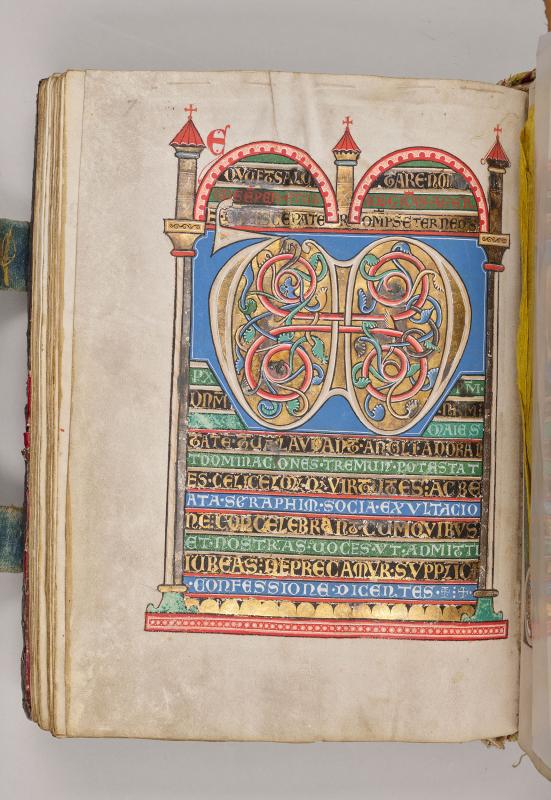 E
QVŪ ET SALV TARE NOS
SCE PATER OMPS ETERNE DS
MAIES
TATE·TUĀ·LAUDANT·ANGLI·ADORAN
T·DOMINACIONES·TREMUNT·POTESTAT
ES·CELI VIRTUTES·AC BE
ATA·SERAPHIM·SOCIA·EXVLTACIO
NE·CONCELEBRANT·CUM QVIBVS
ET·NOSTRAS·UOCES·VT·ADMITTI
IUBEAS·DEPRECAMVR·SVPPLICI
·CONFESSIONE·DICENTES·